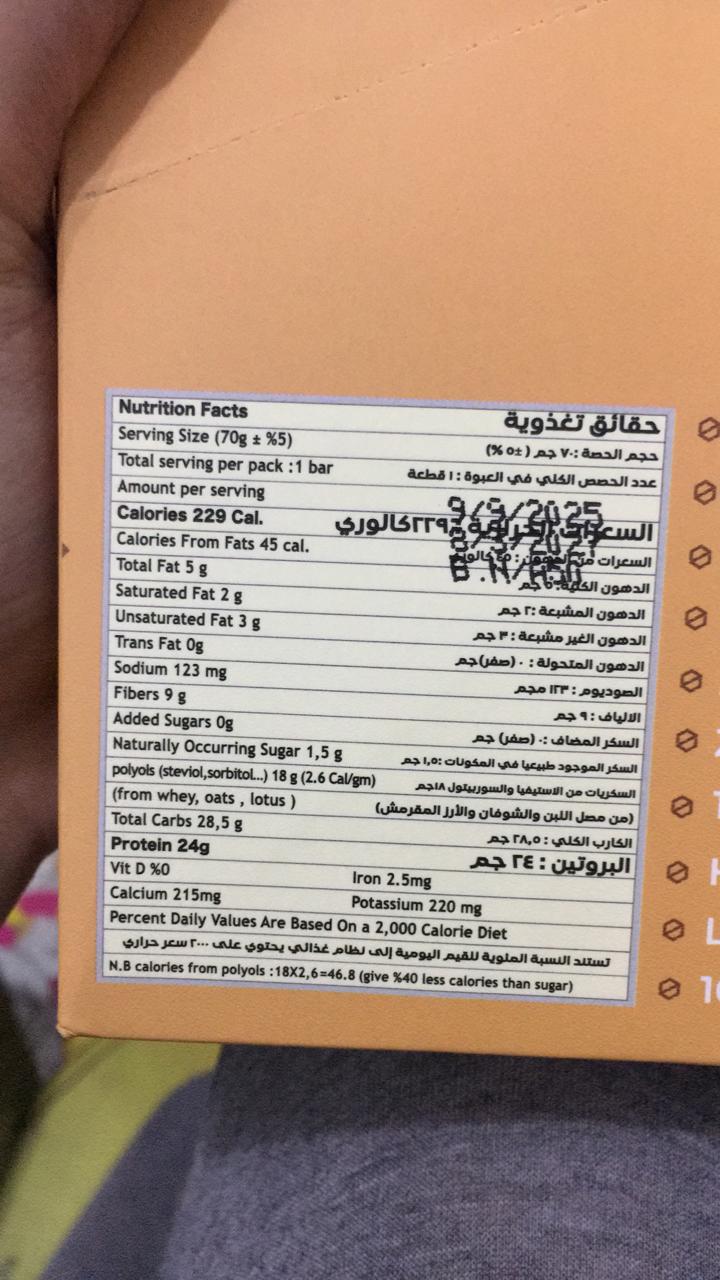 Nutrition Facts حقائق تغذوية
Serving Size (70g ± %5) حجم الحصة :٧٠ جم (±٥ %)
Total serving per pack :1 bar عدد الحصص الكلي في العبوة : ١ قطعة
Amount per serving
9/9/2025
Calories 229 Cal. السعرات الحرارية ٢٢٩كالوري
Calories From Fats 45 cal. السعرات من : ٤٥ كالوري
Total Fat 5 g الدهون الكلية: ٥ جم
B.N/
Saturated Fat 2 g الدهون المشبعة :٢ جم
Unsaturated Fat 3 g الدهون الغير مشبعة : ٣ جم
Trans Fat 0g الدهون المتحولة : ٠ (صفر)جم
Sodium 123 mg الصوديوم : ١٢٣ مجم
Fibers 9 g الالياف : ٩ جم
Added Sugars 0g السكر المضاف :٠ (صفر) جم
Naturally Occurring Sugar 1,5 g السكر الموجود طبيعيا في المكونات :١,٥ جم
polyols (steviol,sorbitol...) 18 g (2.6 Cal/gm) السكريات من الاستيفيا والسوربيتول ١٨جم
(from whey, oats , lotus ) (من مصل اللبن والشوفان والأرز المقرمش)
Total Carbs 28,5 g الكارب الكلي : ٢٨,٥ جم
Protein 24g البروتين : ٢٤ جم
Vit D %0 Iron 2.5mg
Calcium 215mg Potassium 220 mg
Percent Daily Values Are Based On a 2,000 Calorie Diet
تستند النسبة المئوية للقيم اليومية إلى نظام غذائي يحتوي على ٢٠٠٠ سعر حراري
N.B calories from polyols :18X2,6=46.8 (give %40 less calories than sugar)